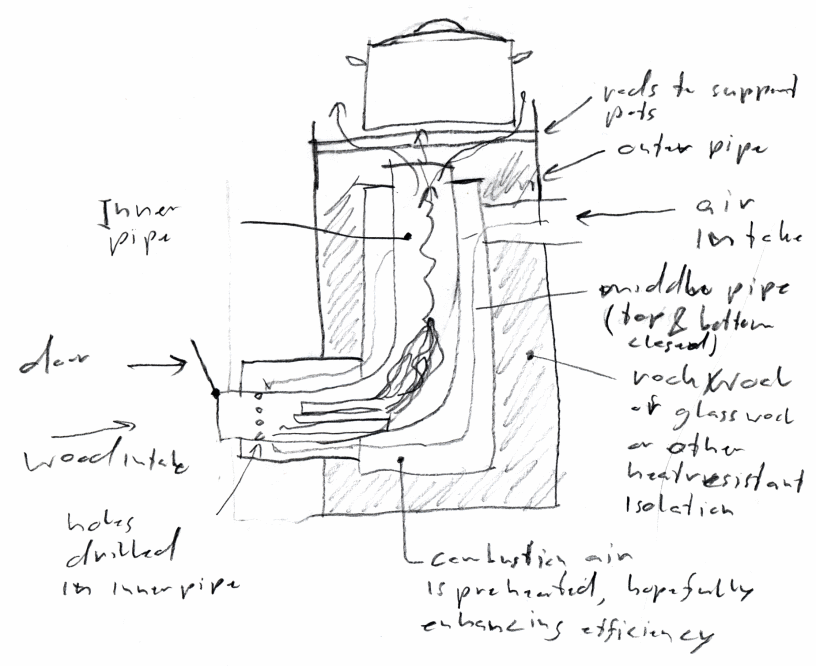 rods to support
pots
outer pipe
Inner
pipe
air
Intake
middle pipe
(top & bottom
closed)
door
rock wool
of glasswool
or other
heatresistant
Isolation
wood intake
holes
drilled
in innerpipe
combustion air
is preheated, hopefully
enhancing efficiency